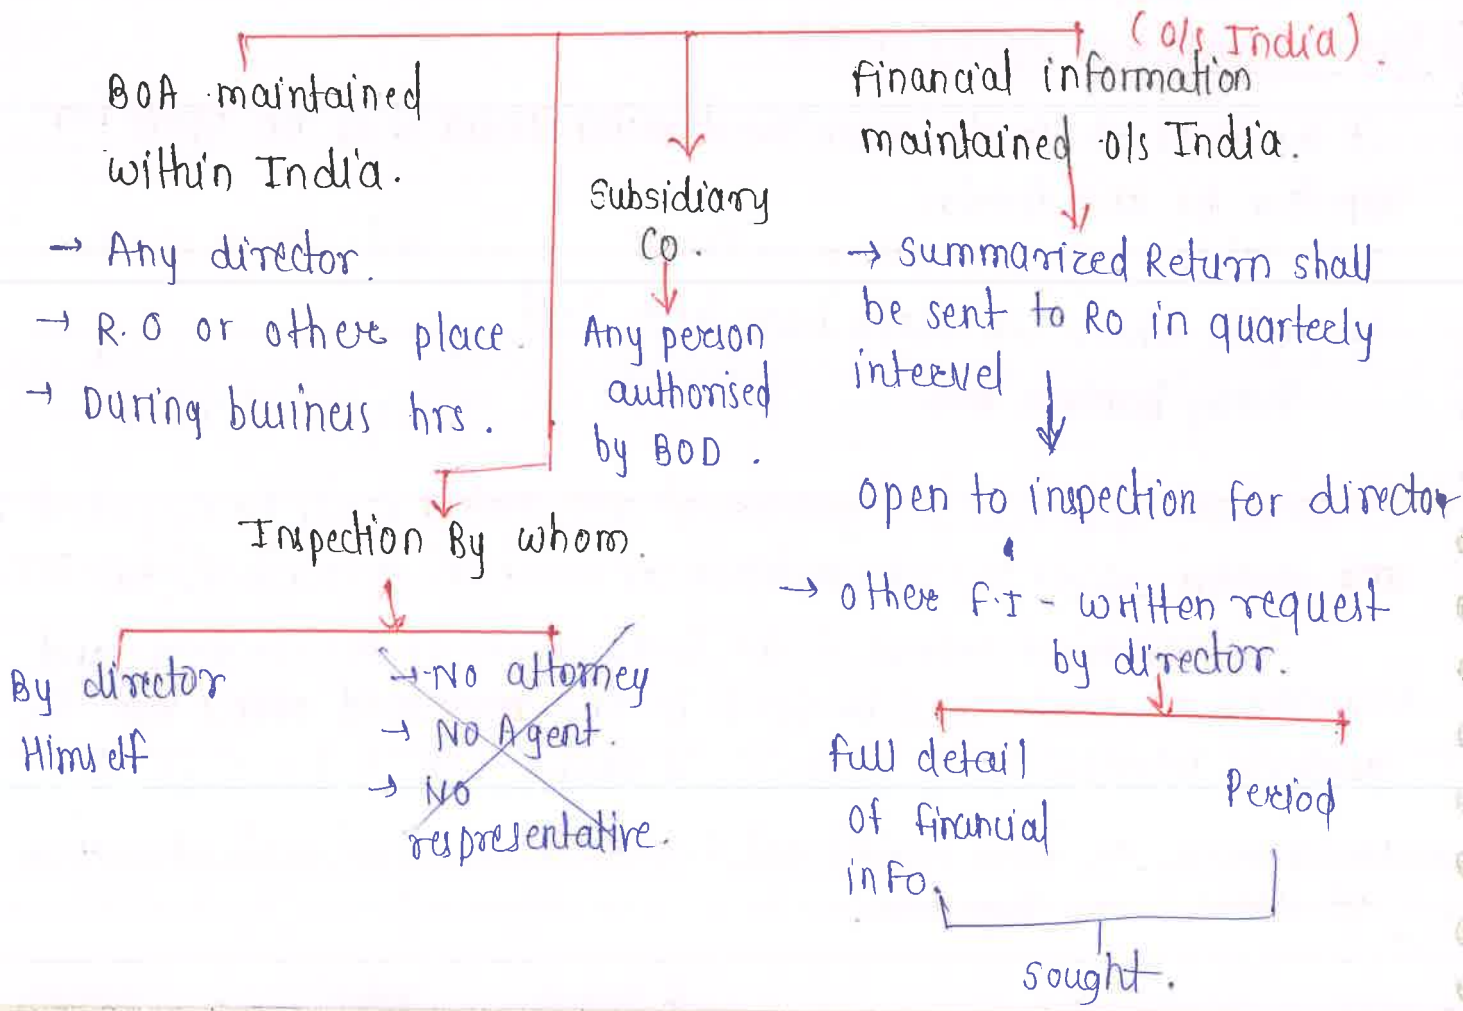 (o/s India).
BOA maintained
within India.
→ Any director.
→ R.O or other place.
→ During business hrs.
Subsidiary
CO.
Any person
authorised
by BOD.
Financial information
maintained o/s India.
→ Summarized Return shall
be sent to RO in quarterly
intervel
open to inspection for director
→ other F.I - written request
by director.
full detail
of financial
info.
Period
sought.
Inspection By whom.
By director
Himself
→ No attorney
→ No Agent.
→ No
respresentative.